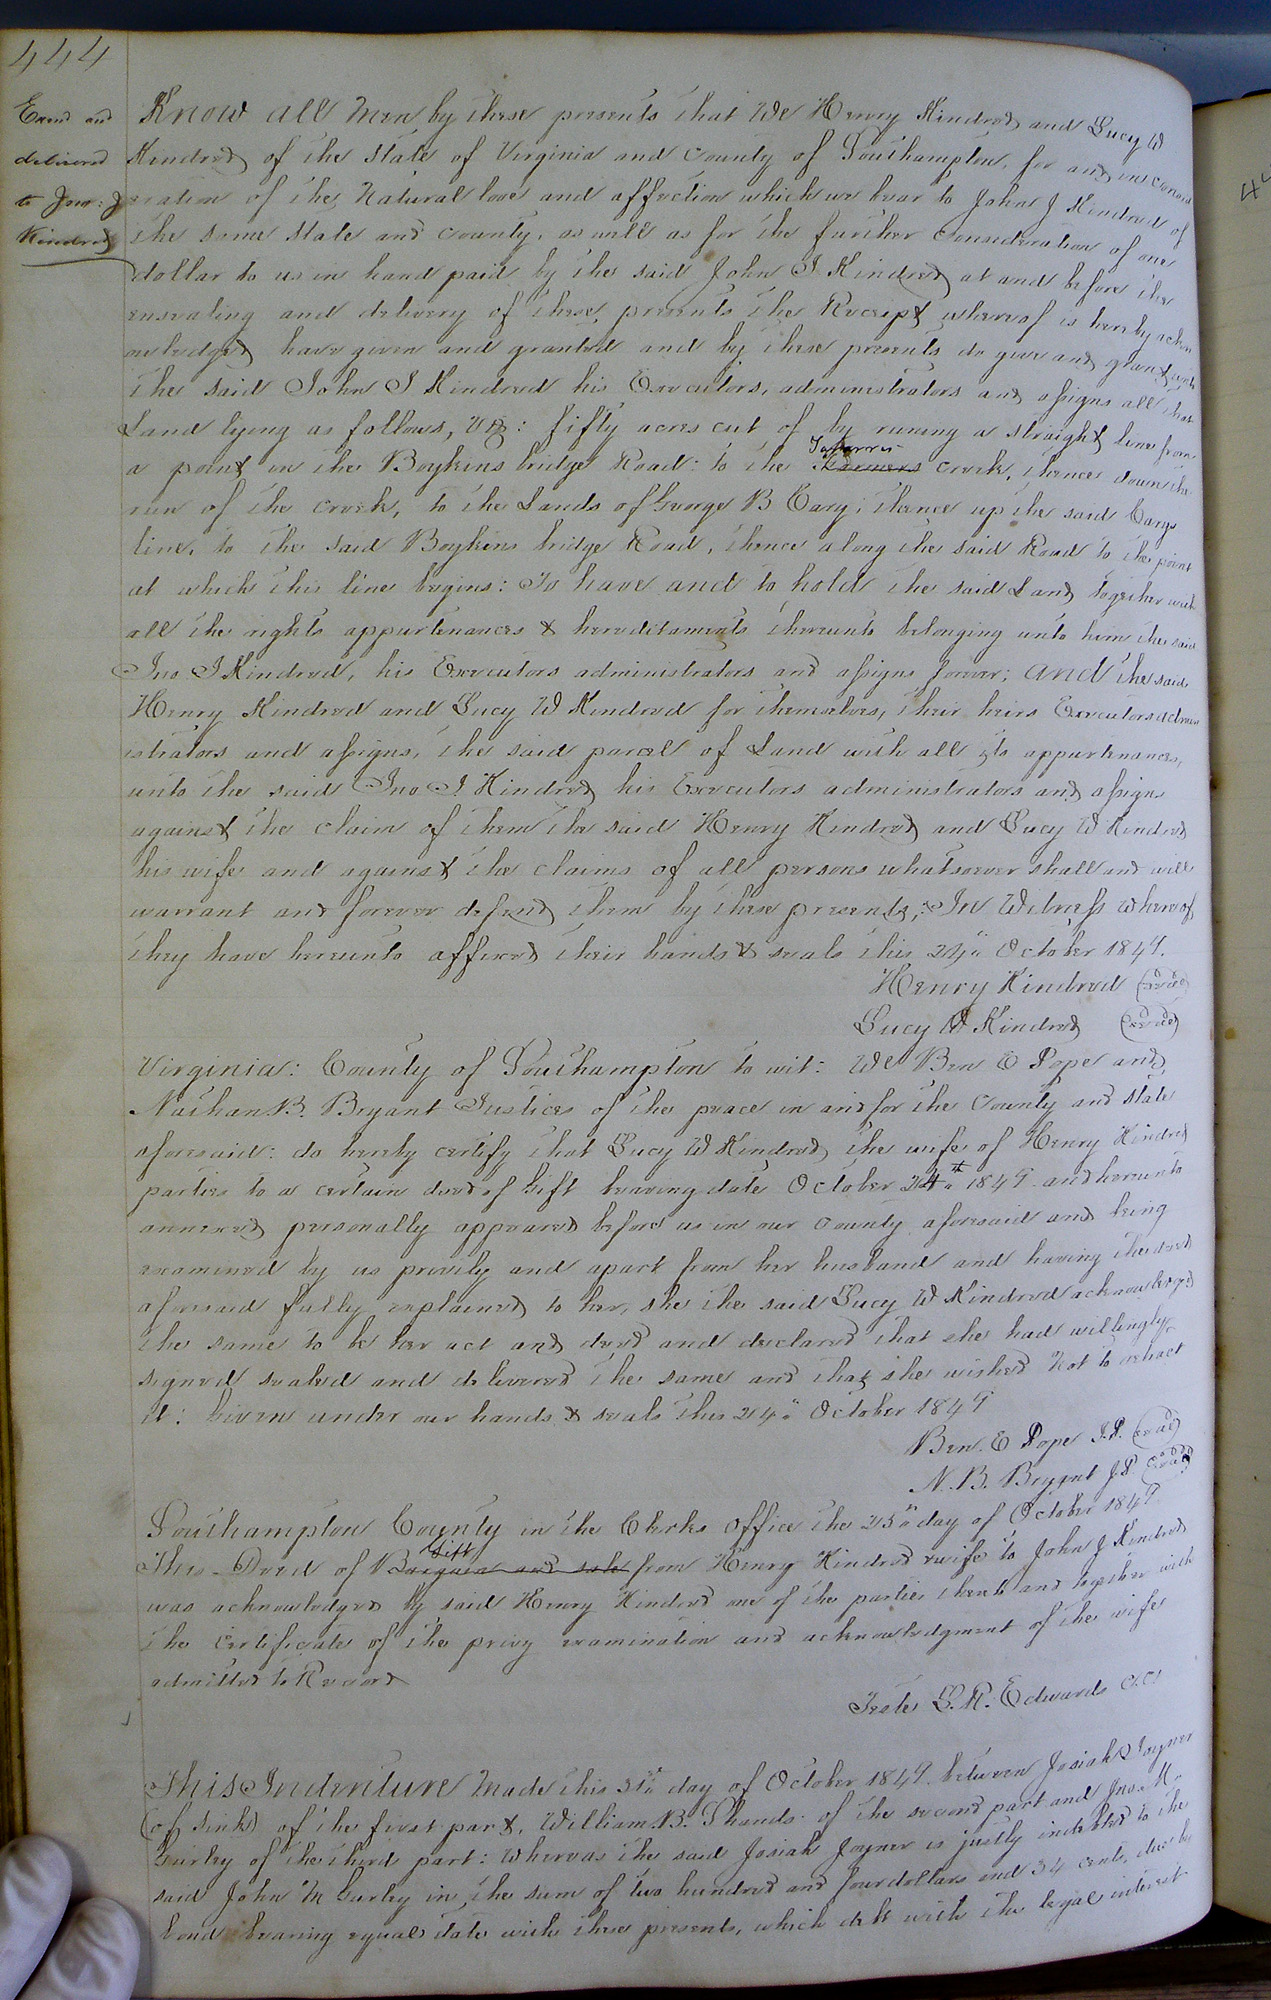 444
Exend and
delivered
to Jno: J
Kindred
Know all Men by these presents that We Henry Kindred and Lucy W
Kindred of the State of Virginia and County of Southampton, for and in consid
eration of the Natural love and affection which we bear to John J Kindred of
the same State and County, as well as for the further Consideration of one
dollar to us in hand paid by the said John J Kindred at and before the
ensealing and delivery of these presents the Receipt whereof is hereby ackn
owledged have given and granted and by these presents do give and grant unto
the said John J Kindred his Executors, administrators and assigns all that
Land lying as follows, viz: fifty acres cut of by runing a straight line from
a point in the Boykins bridge Road: to the creek, thence down the
run of the creek, to the Lands of George B Cary; thence up the said Carys
line, to the said Boykins bridge Road, thence along the said Road to the point
at which this line begins: To have and to hold the said Land together with
all the rights appurtenances & hereditaments thereunto belonging unto him the said
Jno J Kindred, his Executors administrators and assigns forever; and the said
Henry Kindred and Lucy W Kindred for themselves, their heirs Executors admin
istrators and assigns, the said parcel of Land with all its appurtenances,
unto the said Jno J Kindred his Executors administrators and assigns
against the claim of them the said Henry Kindred and Lucy W Kindred
his wife and against the claims of all persons whatsoever shall and will
warrant and forever defend them by these presents; In Witness whereof
they have hereunto affixed their hands & seals this 24" October 1849.
Henry Kindred (seal)
Lucy W Kindred (seal)
Virginia: County of Southampton to wit: We Ben E Pope and
Nathan B. Bryant Justices of the peace in and for the County and State
aforesaid: do hereby certify that Lucy W Kindred the wife of Henry Kindred
parties to a certain deed of Gift bearing date October 24th 1849 and hereunto
annexed personally appeared before us in our County aforesaid and being
examined by us privily and apart from her husband and having the deed
aforesaid fully explained to her, she the said Lucy W Kindred acknowledged
the same to be her act and deed and declared that she had willingly
signed sealed and delivered the same and that she wished not to retract
it: Given under our hands & seals this 24" October 1849
Ben. E Pope J.P. (seal)
N. B. Bryant J.P. (seal)
Southampton County in the Clerks Office the 25" day of October 1849
Gift
This Deed of Bargain and sale from Henry Kindred & wife to John J Kindred
was acknowledged by said Henry Kindred one of the parties thereto and together with
the Certificate of the privy examination and acknowledgment of the wife
admitted to Record
Teste L. R. Edwards C.C.
This Indenture Made this 31st day of October 1849 between Josiah Joyner
(of Sinks) of the first part, William B. Shands of the second part and Jno. M.
Gurley of the third part: Whereas the said Josiah Joyner is justly indebted to the
said John M Gurley in the sum of two hundred and four dollars and 34 cents, due by
bond bearing equal date with these presents, which debt with the legal interest